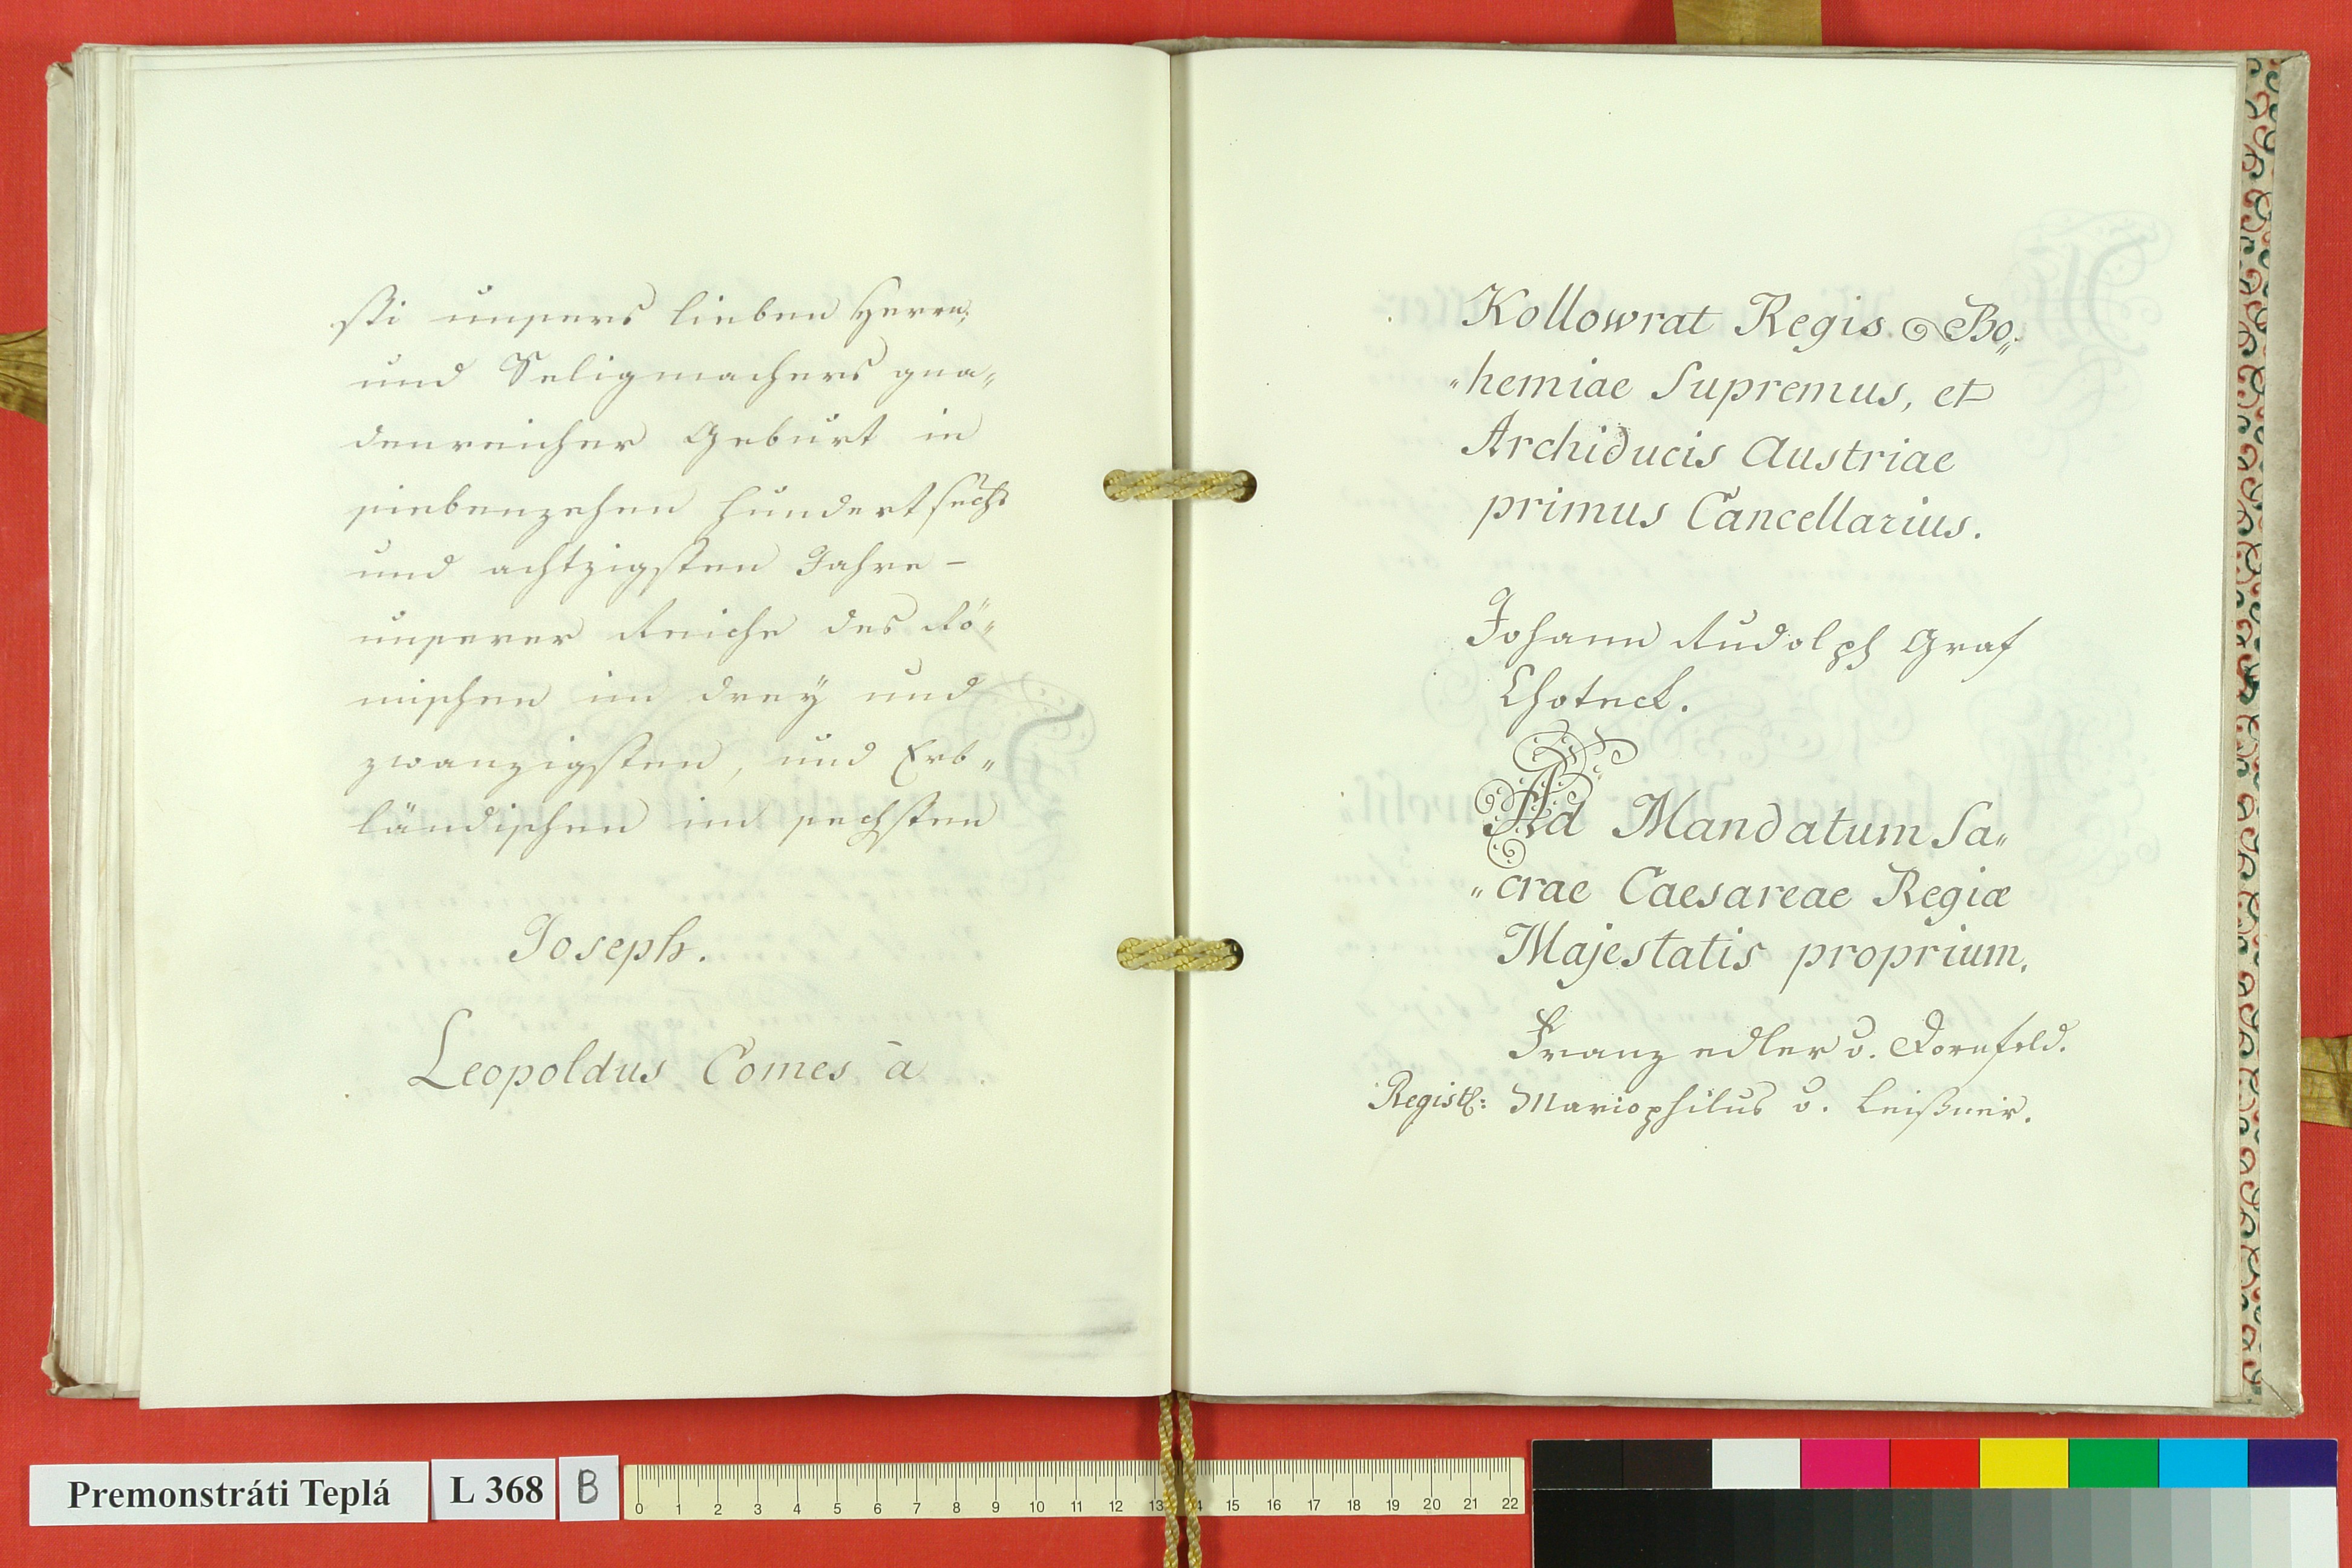 sti unsers lieben Herrn,
und Seligmachers gna„
denreicher Geburt in
siebenzehen hundert sechs
und achtzigsten Jahre –
unserer Reiche des Rö„
mischen im drey und
zwanzigsten, und Erb„
ländischen im sechsten
Joseph.
Leopoldus Comes à
Kollowrat Regis Bo„
„hemiae Supremus, et
Archiducis Austriae
primus Cancellarius.
Johann Rudolph Graf
Choteck.
Ad Mandatum Sa„
„crae Caesareae Regiæ
Majestatis proprium.
Franz edler v. Dornfeld.
Mariophilus v. Leißneir.
Premonstráti Teplá L 368 B
0 1 2 3 4 5 6 7 8 9 10 11 12 13 14 15 16 17 18 19 20 21 22